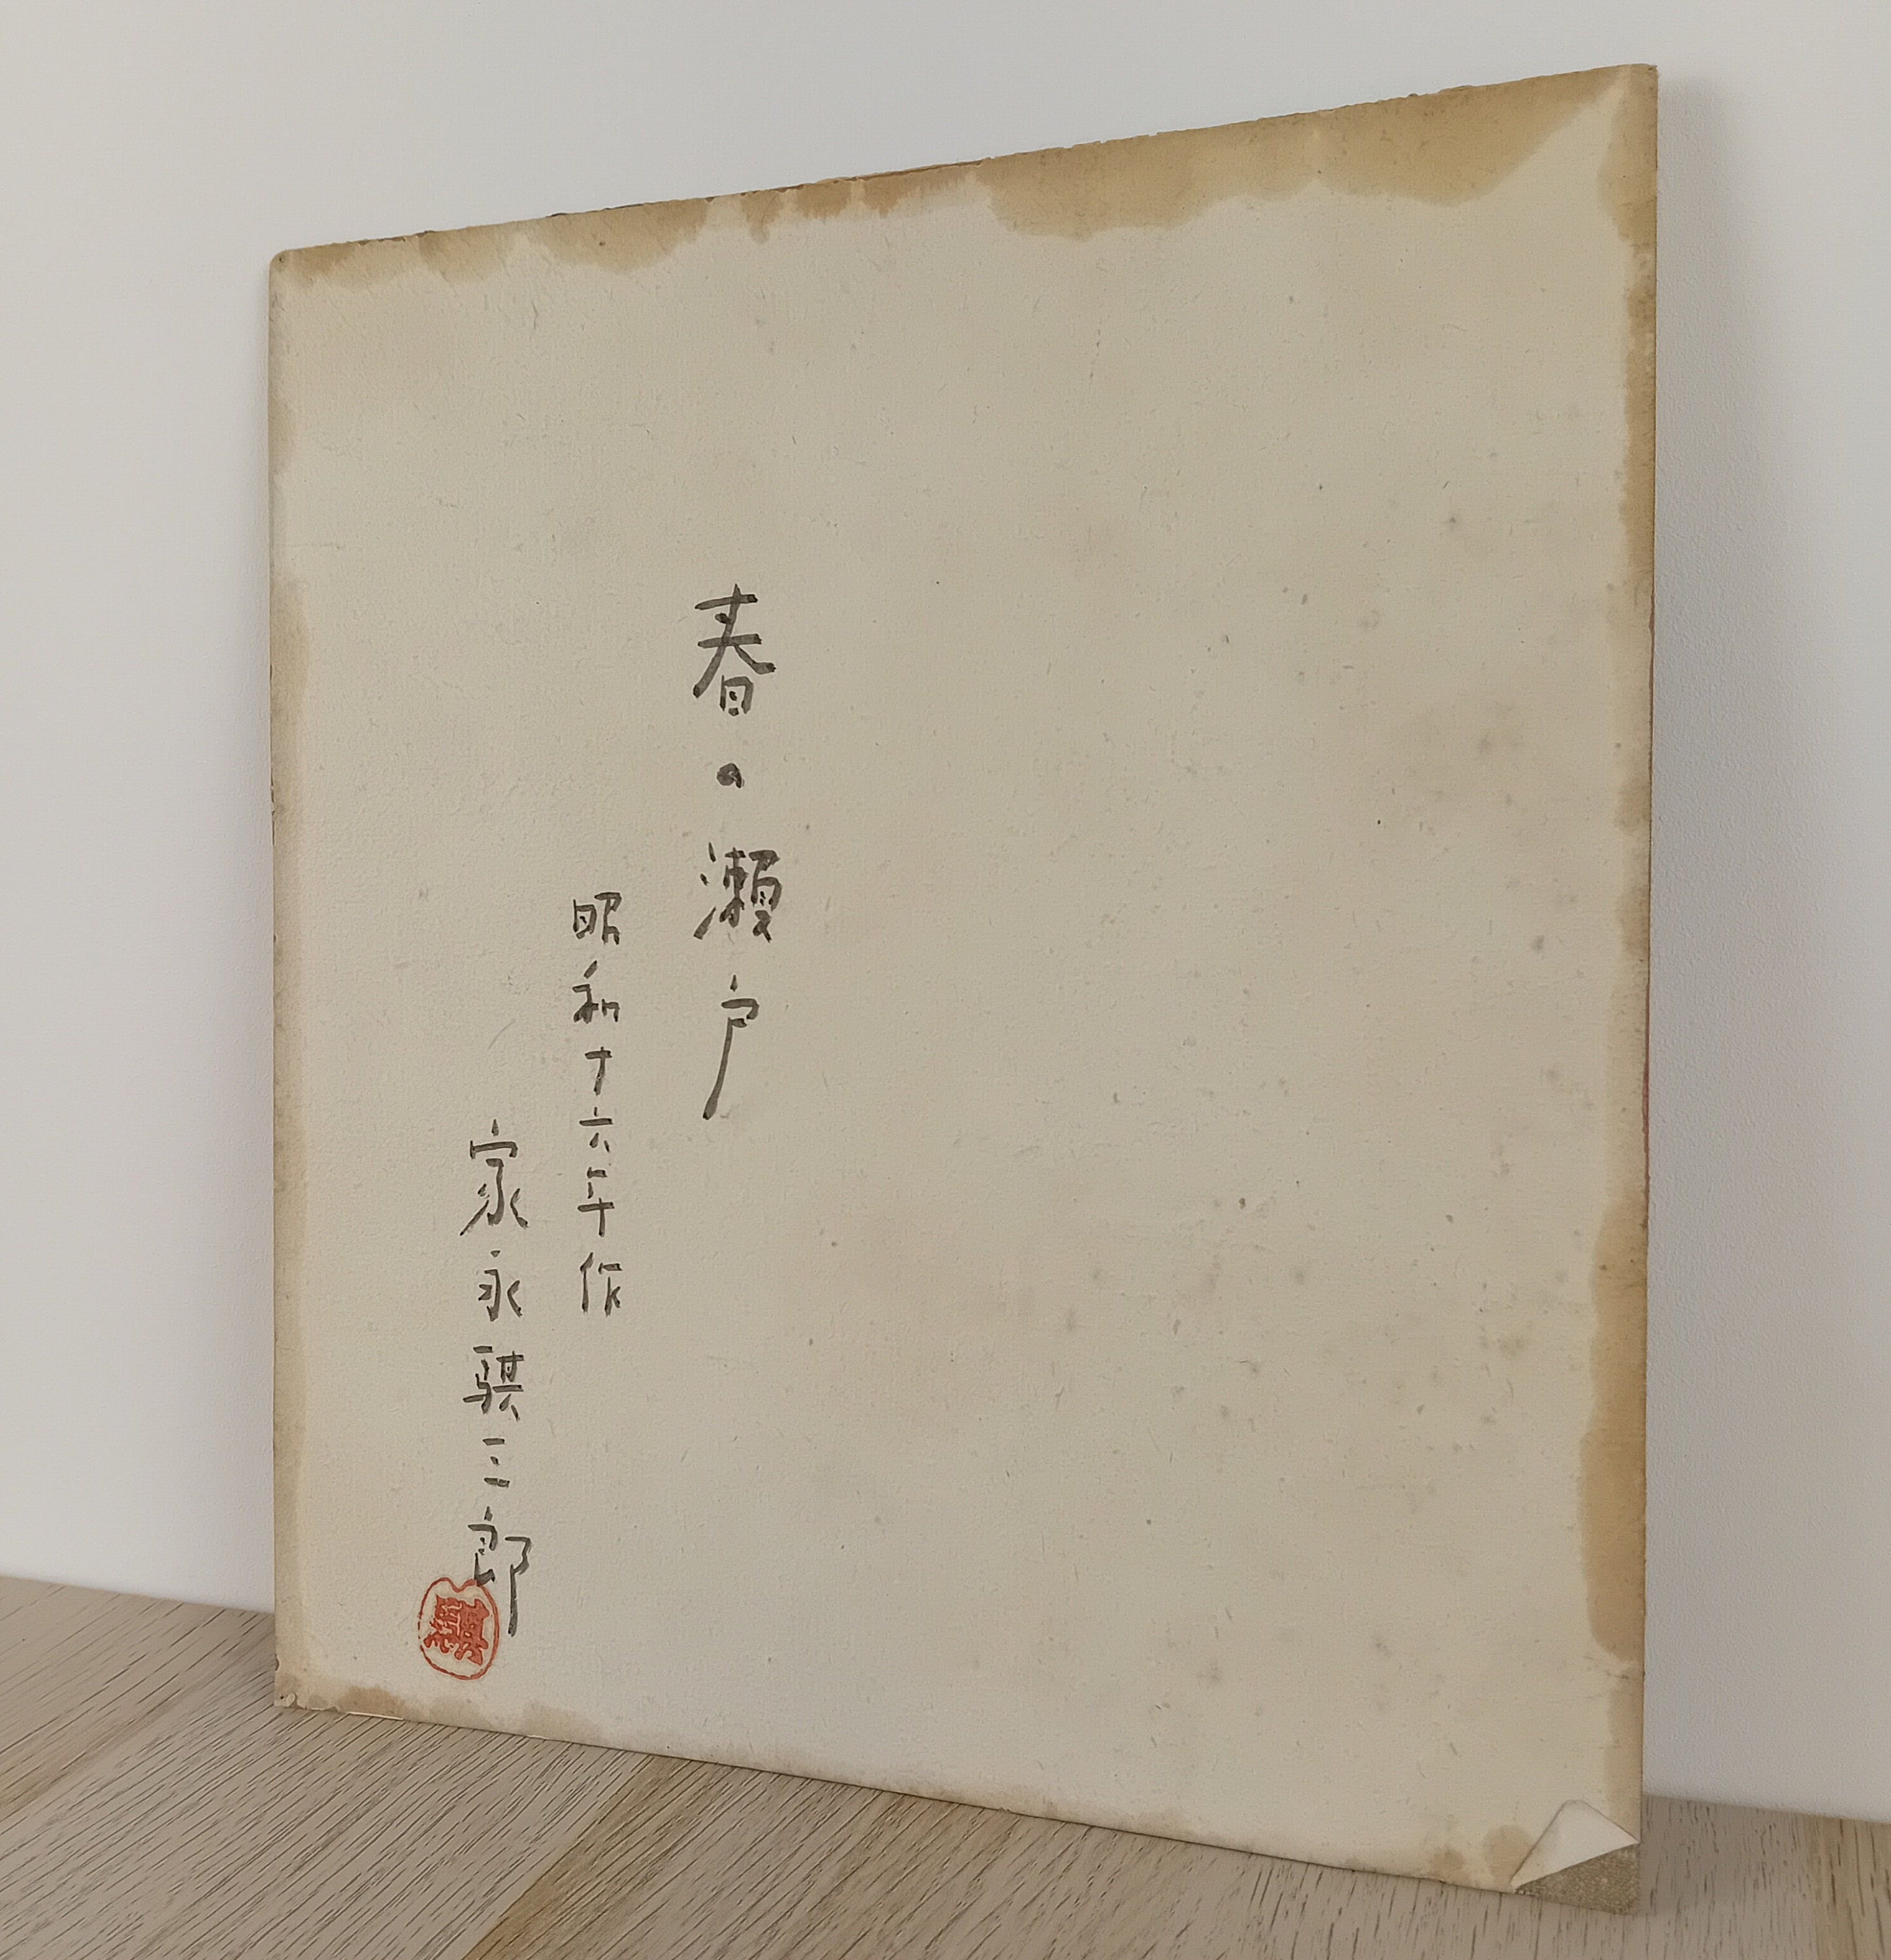 春の瀬戸
昭和十六年作
家永騏三郎